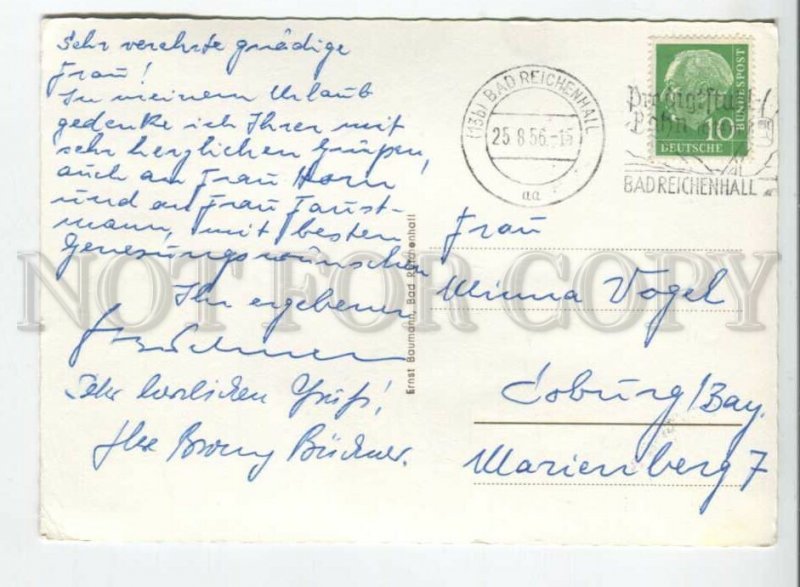 Sehr verehrte gnädige
Frau!
In meinem Urlaub
gedenke ich Ihrer mit
sehr herzlichen Grüßen,
auch an Frau Horn
und an Frau Faust-
mann, mit besten
Genesungswünschen
Ihr ergebener
Büchner
Sehr herzlichen Gruß!
Ihre Büchner.
Ernst Baumann, Bad Reichenhall
(13b) BAD REICHENHALL
25.8.56.-15
aa
Predigtstuhl
Bahn
BAD REICHENHALL
10
DEUTSCHE
BUNDESPOST
Frau
Minna Vogel
Coburg/Bay.
Marienberg 7
NOT FOR COPY